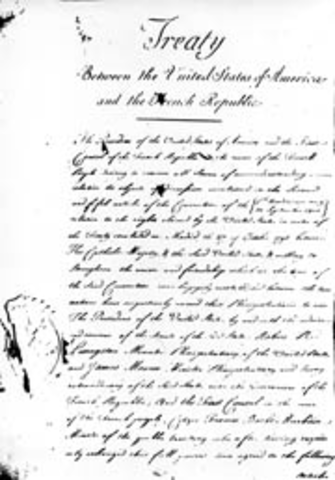 Treaty
Between the United States of America
and the French Republic
The President of the United States of America and the First
Consul of the French Republic in the name of the French
People desiring to remove all Source of misunderstanding
relative to objects of discussion mentioned in the Second
and fifth articles of the Convention of the
relative to the rights claimed by the United States in virtue of
the Treaty concluded at Madrid the of October 1795 between
His Catholic Majesty & the Said United States, & willing to
Strengthen the union and friendship which at the time of
the Said Convention was happily between the two
nations have respectively named their Plenipotentiaries to wit
The President of the United States, by and with the advice
and consent of the Senate of the Said States Robert R.
Livingston Minister Plenipotentiary of the United States
and James Monroe Minister Plenipotentiary and Envoy
extraordinary of the Said States near the Government of the
French Republic; And the First Consul in the name
of the French people, Citizen Francis Barbé Marbois
Minister of the public treasury who after having respec
tively exchanged their full powers have agreed to the following